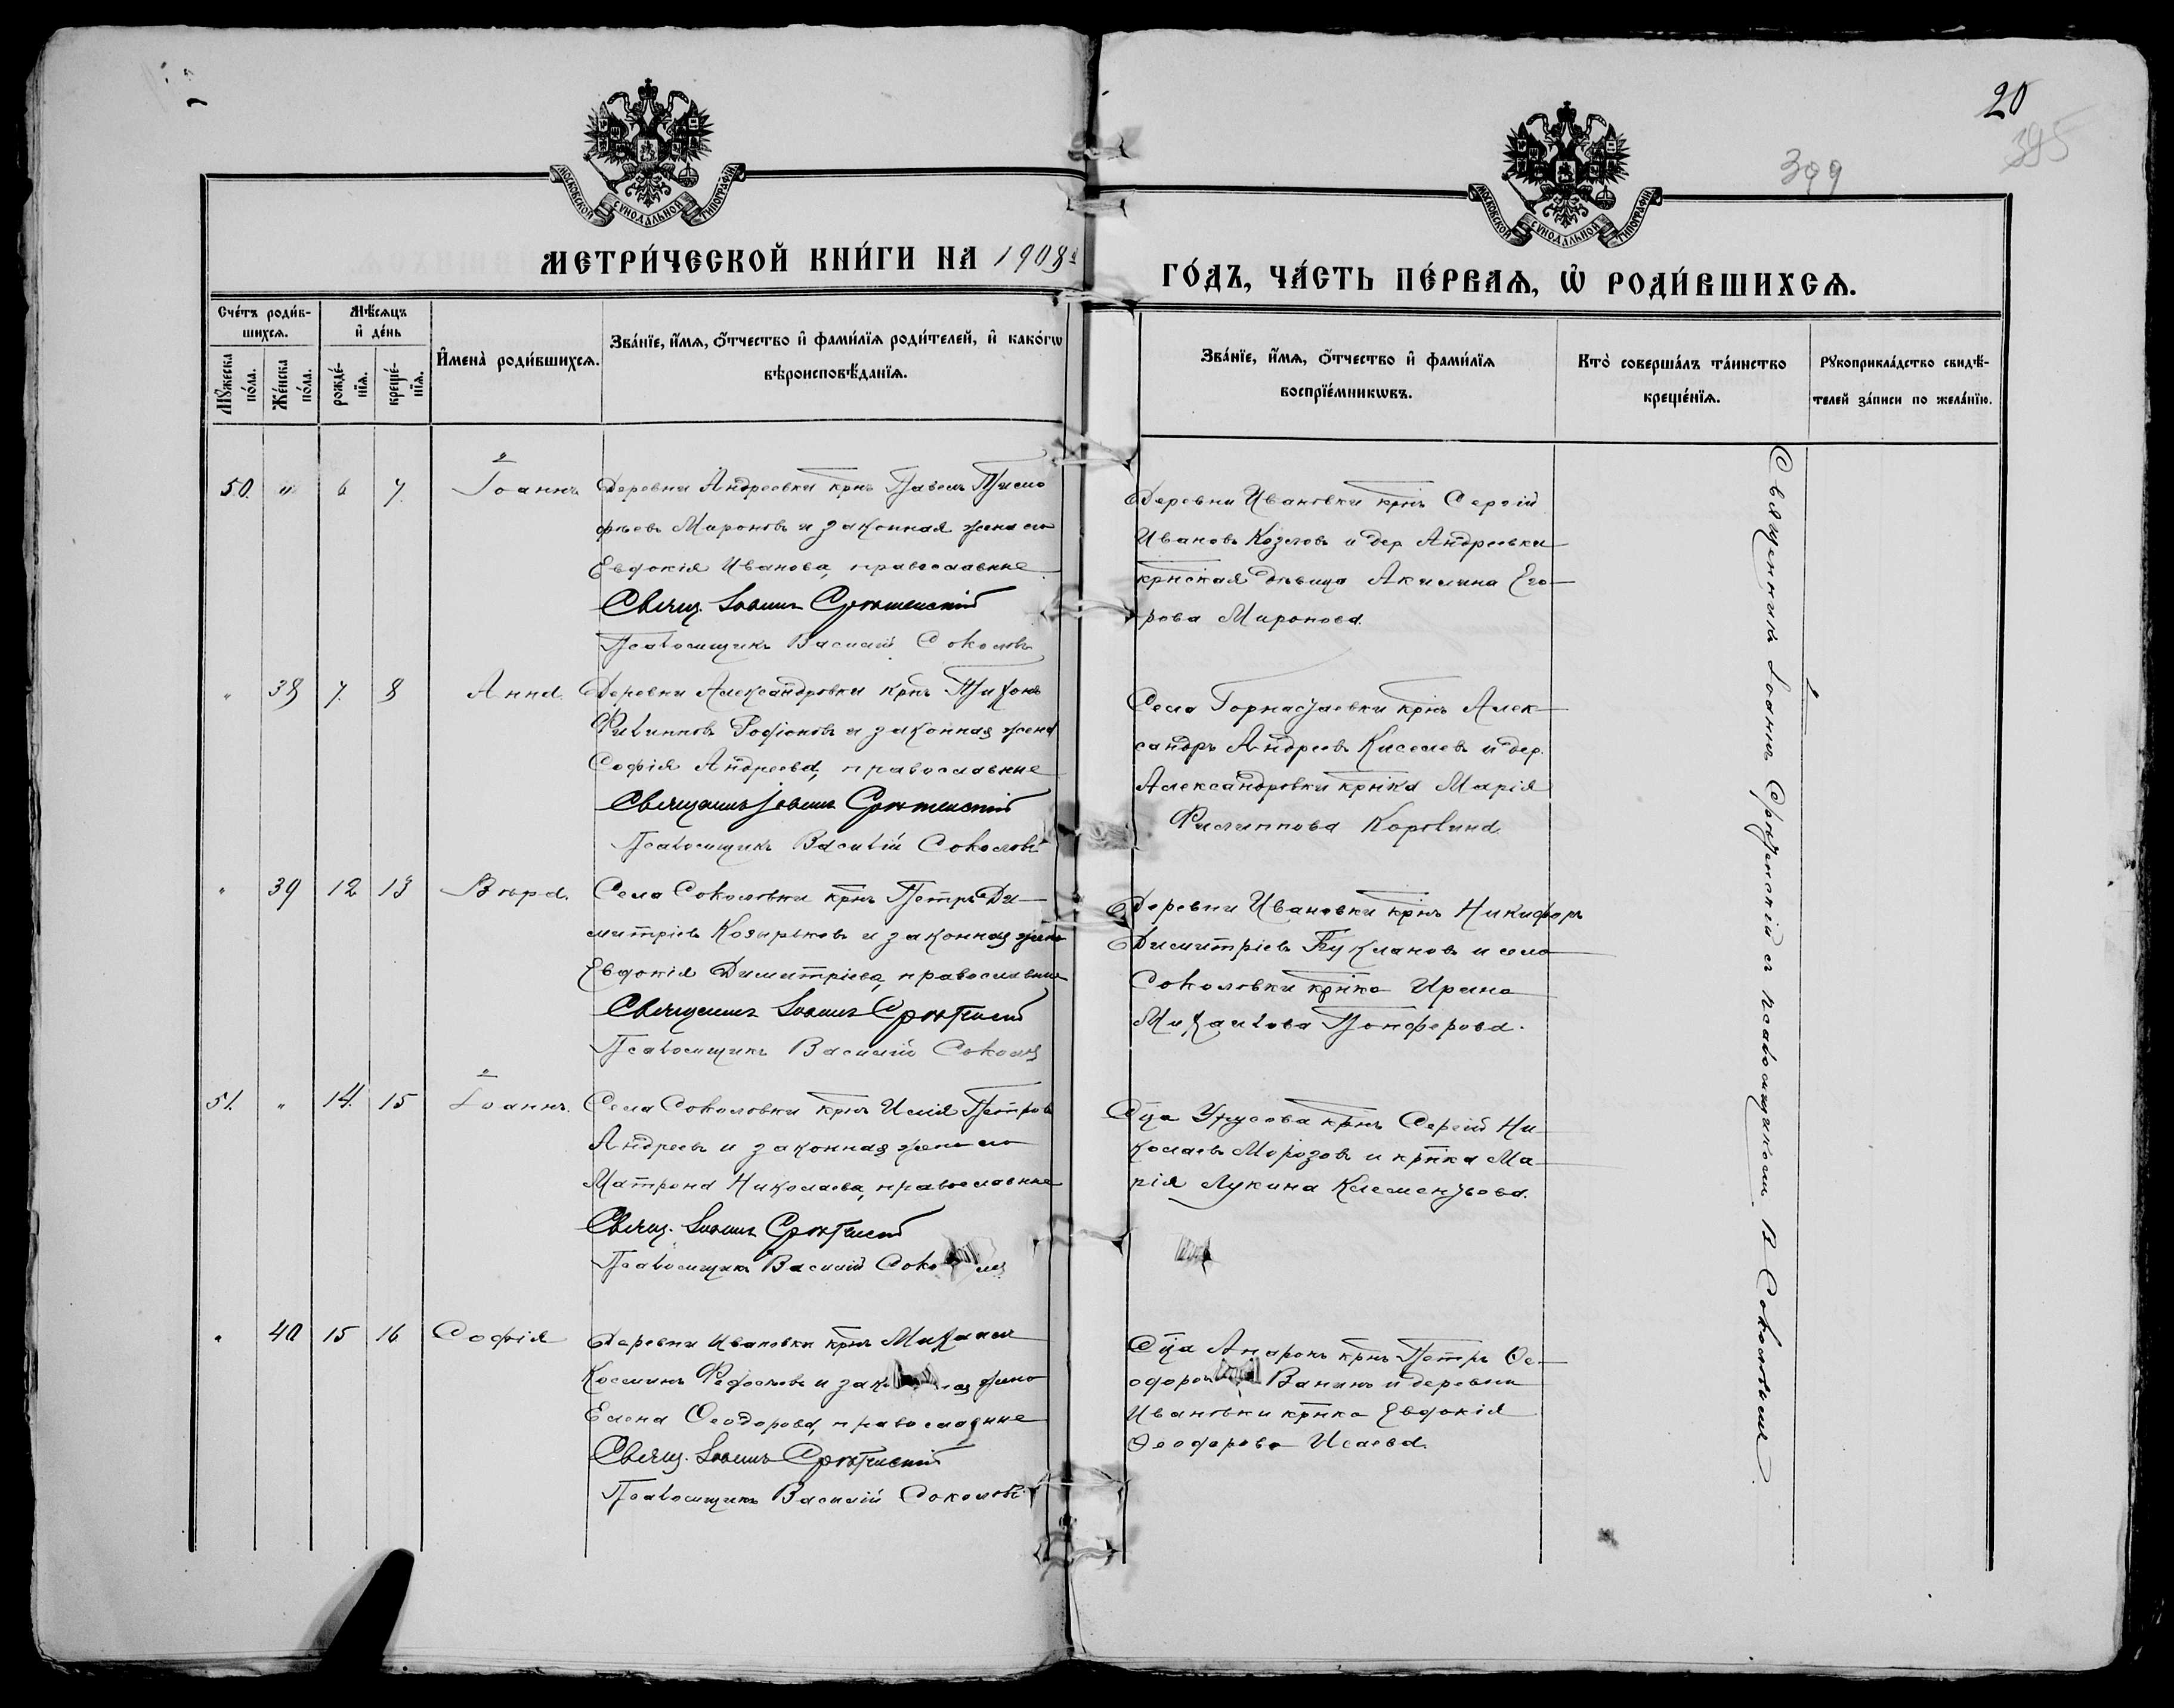 20
395
399
МОСКОВСКОЙ СѴНОДАЛЬНОЙ ТИПОГРАФІИ
МОСКОВСКОЙ СѴНОДАЛЬНОЙ ТИПОГРАФІИ
МЕТРИ́ЧЕСКОЙ КНИ́ГИ НА 1908й
ГО́ДЪ, ЧА́СТЬ ПЕ́РВАѦ, Ѡ҆ РОДИ́ВШИХСѦ.
Сче́тъ роди́в-
шихсѧ.
Мѣ́сѧцъ
и҆ де́нь
Мꙋ́жеска
по́ла.
Же́нска
по́ла.
рожде́-
нїѧ.
креще́-
нїѧ.
И҆мена̀ роди́вшихсѧ.
Зва́нїе, и҆́мѧ, ѻ҆́тчество и҆ фами́лїѧ роди́телей, и҆ како́гѡ
вѣроисповѣ́данїѧ.
Зва́нїе, и҆́мѧ, ѻ҆́тчество и҆ фами́лїѧ
воспрїе́мникѡвъ.
Кто̀ соверша́лъ та́инство
креще́нїѧ.
Рꙋкоприкла́дство свидѣ́-
телей за́писи по жела́нїю.
50. " 6 7. Іоаннъ
Деревни Андреевки крнъ Павелъ Тимо
фѣевъ Мироновъ и законная жена его
Евдокія Иванова, православные
Свящ. Іоаннъ Срѣтенскій
Псаломщикъ Василій Соколовъ
Деревни Ивановки крнъ Сергій
Ивановъ Козловъ и дер Андреевки
крнская дѣвица Акилина Его-
рова Миронова.
" 38 7. 8 Анна.
Деревни Александровки крнъ Тихонъ
Филипповъ Родіоновъ и законная жена
Софія Андреева, православные
Священникъ Іоаннъ Срѣтенскій
Псаломщикъ Василій Соколовъ
Села Горностаевки крнъ Алек-
сандръ Андреевъ Киселевъ и дер.
Александровки крнка Марія
Филиппова Коровина
" 39 12 13 Вѣра.
Села Соколовки крнъ Петръ Ди-
митріевъ Козырьковъ и законная жена
Евдокія Димитріева, православные
Священникъ Іоаннъ Срѣтенскій
Псаломщикъ Василій Соколовъ
Деревни Ивановки крнъ Никифоръ
Димитріевъ Буклановъ и села
Соколовки крнка Ирина
Михаилова Понферова.
51. " 14. 15 Іоаннъ.
Села Соколовки крнъ Илія Петровъ
Андреевъ и законная жена его
Матрона Николаева, православные
Свящ. Іоаннъ Срѣтенскій
Псаломщикъ Василій Соколовъ
Сельца Урусова крнъ Сергій Ни-
колаевъ Морозовъ и крнка Ма-
рія Лукина Клементьева.
" 40 15 16 Софія
Деревни Ивановки крнъ Михаилъ
Косминъ Федосѣевъ и законная жена
Елена Ѳеодорова, православные
Свящ. Іоаннъ Срѣтенскій
Псаломщикъ Василій Соколовъ
крнъ Петръ Ѳе-
одоровъ Ванинъ и деревни
Ивановки крнка Евдокія
Ѳеодорова Исаева.
Священникъ Іоаннъ Срѣтенскій съ псаломщикомъ В. Соколовымъ.